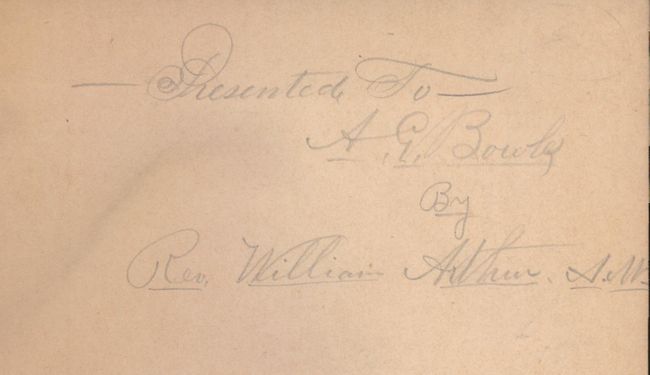 — Presented To —
A. G. Bowls
By
Rev. William Arthur.